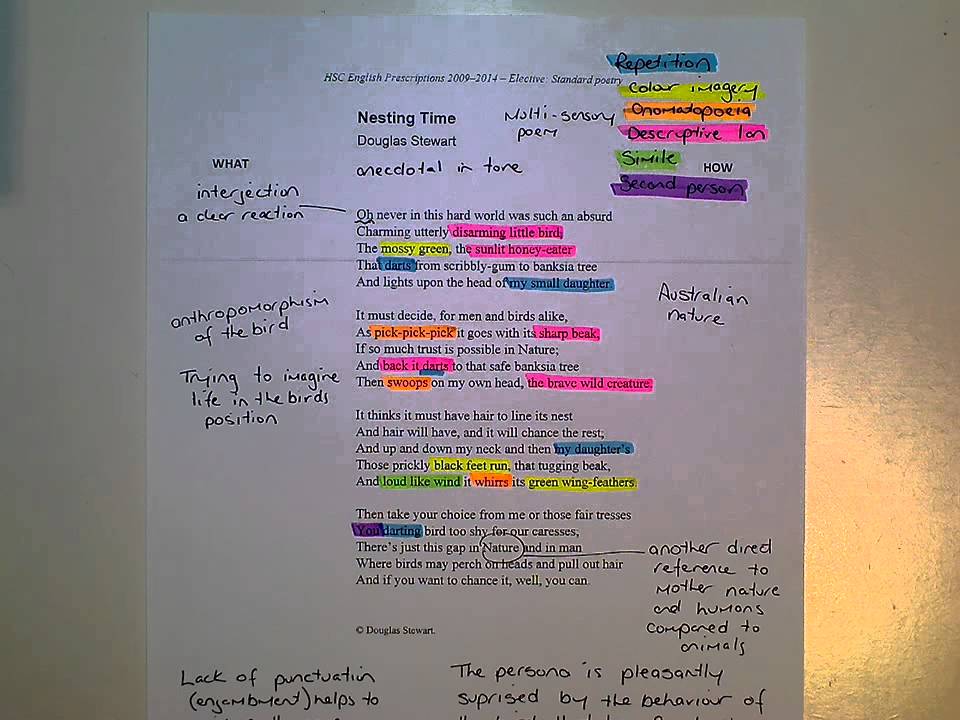 HSC English Prescriptions 2009–2014 – Elective: Standard poetry
Repetition
Color imagery
Onomatopoeia
Descriptive lan
Simile
HOW
Second person
Nesting Time
Multi-sensory
poem
Douglas Stewart
anecdotal in tone
WHAT
interjection
a clear reaction
Oh never in this hard world was such an absurd
Charming utterly disarming little bird,
The mossy green, the sunlit honey-eater
That darts from scribbly-gum to banksia tree
And lights upon the head of my small daughter.
Australian
nature
anthropomorphism
of the bird
It must decide, for men and birds alike,
As pick-pick-pick it goes with its sharp beak,
If so much trust is possible in Nature;
And back it darts to that safe banksia tree
Then swoops on my own head, the brave wild creature.
Trying to imagine
life in the birds
position
It thinks it must have hair to line its nest
And hair will have, and it will chance the rest;
And up and down my neck and then my daughter's
Those prickly black feet run, that tugging beak,
And loud like wind it whirrs its green wing-feathers.
Then take your choice from me or those fair tresses
You darting bird too shy for our caresses;
There's just this gap in Nature and in man
Where birds may perch on heads and pull out hair
And if you want to chance it, well, you can.
another direct
reference to
Mother nature
and humans
compared to
animals
© Douglas Stewart.
Lack of punctuation
(enjambment) helps to
The persona is pleasantly
suprised by the behaviour of